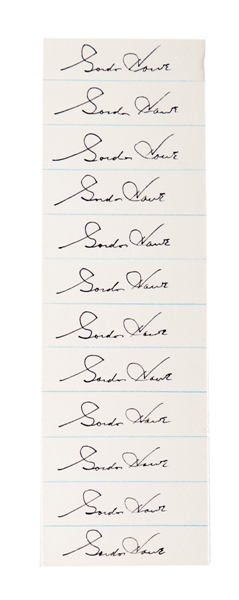 Gordon Howe
Gordon Howe
Gordon Howe
Gordon Howe
Gordon Howe
Gordon Howe
Gordon Howe
Gordon Howe
Gordon Howe
Gordon Howe
Gordon Howe
Gordon Howe